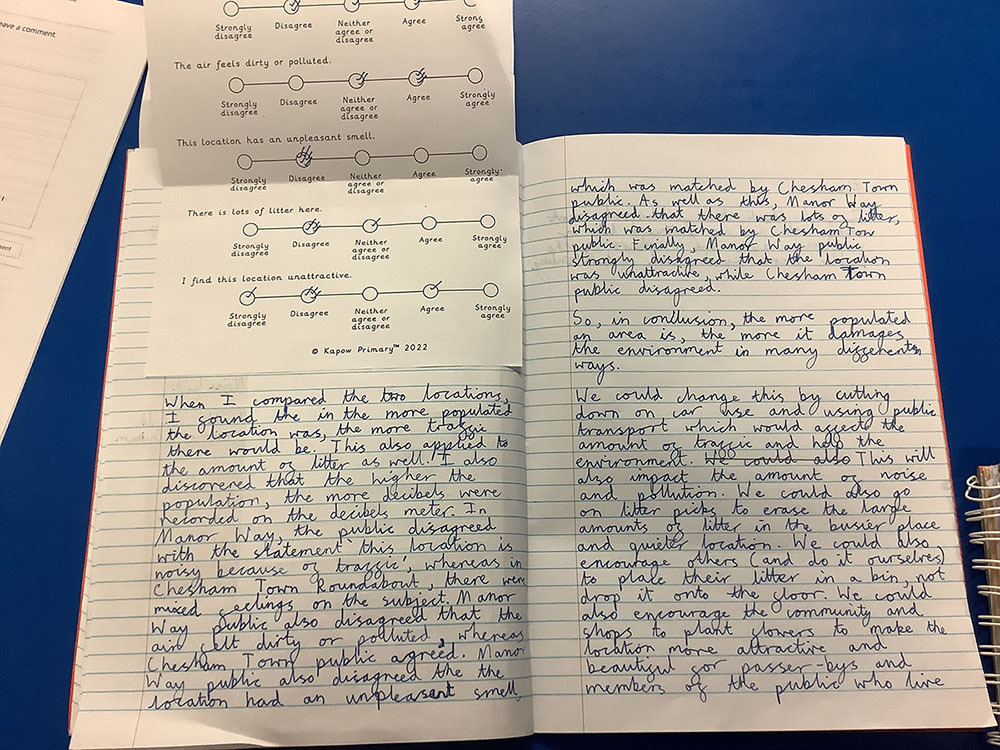 eave a comment.
ment
Strongly disagree
Disagree
Neither agree or disagree
Agree
Strong agree
The air feels dirty or polluted.
Strongly disagree
Disagree
Neither agree or disagree
Agree
Strongly agree
This location has an unpleasant smell.
Strongly disagree
Disagree
Neither agree or disagree
Agree
Strongly agree
There is lots of litter here.
Strongly disagree
Disagree
Neither agree or disagree
Agree
Strongly agree
I find this location unattractive.
Strongly disagree
Disagree
Neither agree or disagree
Agree
Strongly agree
© Kapow Primary™ 2022
When I compared the two locations,
I found the in the more populated
the location was, the more traffic
there would be. This also applied to
the amount of litter as well. I also
discovered that the higher the
population, the more decibels were
recorded on the decibels meter. In
Manor Way, the public disagreed
with the statement 'this location is
noisy because of traffic', whereas in
Chesham Town Roundabout, there were
mixed feelings on the subject. Manor
Way public also disagreed that the
air felt dirty or polluted, whereas
Chesham Town public agreed. Manor
Way public also disagreed the the
location had an unpleasant smell,
which was matched by Chesham Town
public. As well as this, Manor Way
disagreed that there was lots of litter,
which was matched by Chesham Tow
public. Finally, Manor Way public
strongly disagreed that the location
was unattractive, while Chesham Town
public disagreed.
So, in conclusion, the more populated
an area is, the more it damages
the environment in many differents
ways.
We could change this by cutting
down on car use and using public
transport which would affect the
amount of traffic and help the
environment. We could also This will
also impact the amount of noise
and pollution. We could also go
on litter picks to erase the large
amounts of litter in the busier place
and quieter location. We could also
encourage others (and do it ourselves)
to place their litter in a bin, not
drop it onto the floor. We could
also encourage the community and
shops to plant flowers to make the
location more attractive and
beautiful for passer-bys and
members of the public who live